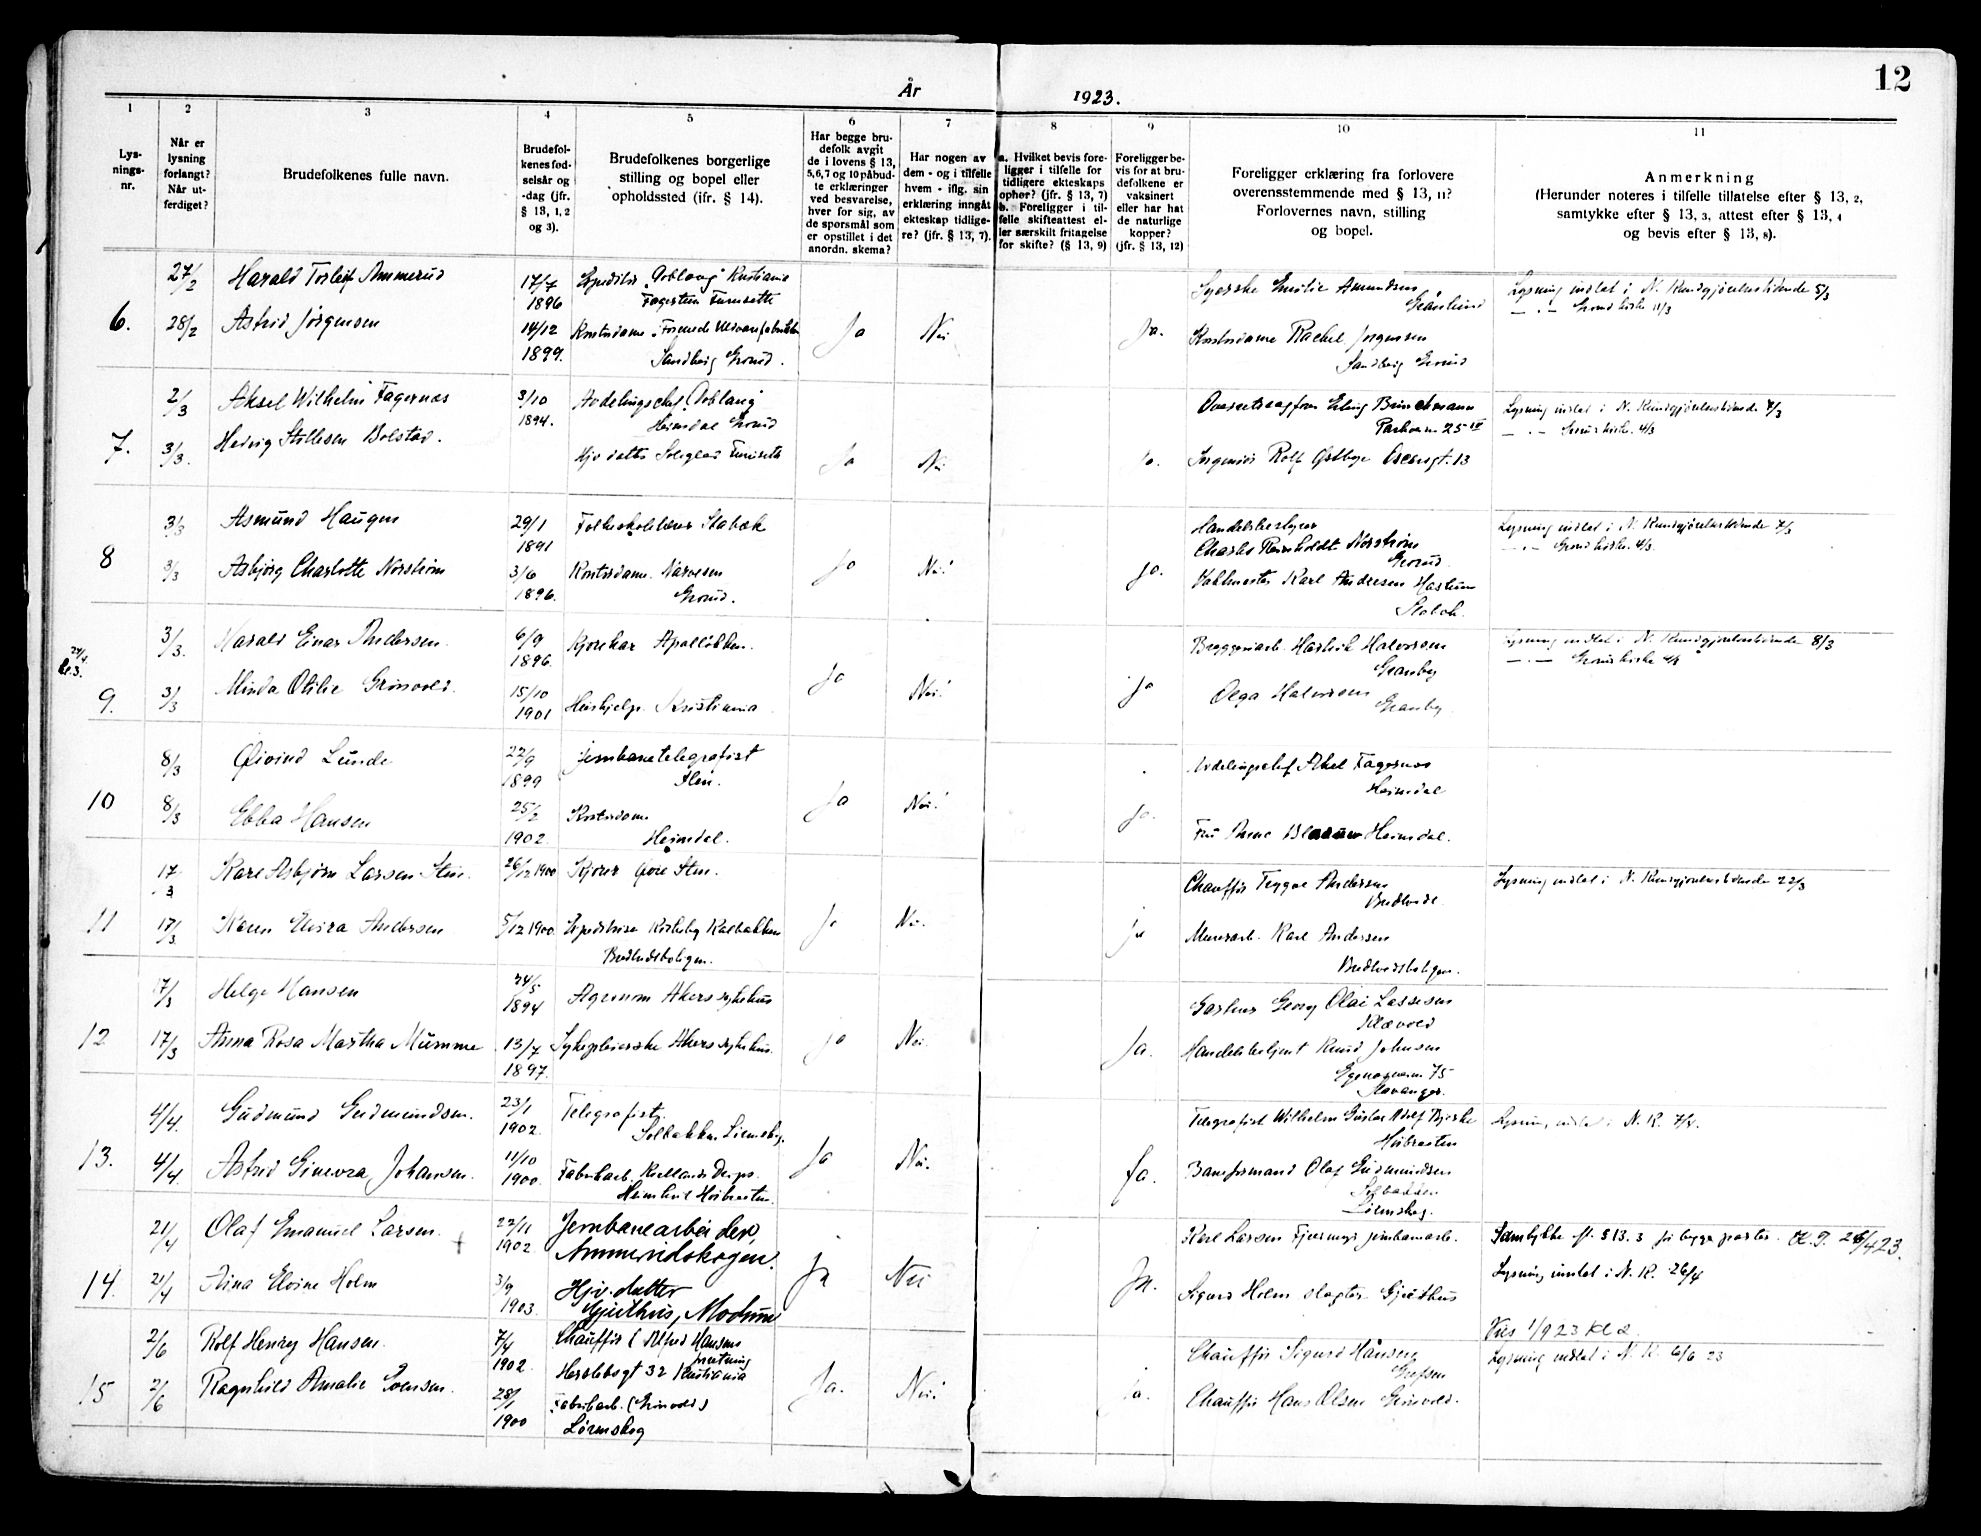 År 1923. 12
1 2 3 4 5 6 7 8 9 10 11
Lys-
nings-
nr.
Når er
lysning
forlangt?
Når ut-
ferdiget?
Brudefolkenes fulle navn.
Brudefol-
kenes fød-
selsår og
-dag (jfr.
§ 13, 1, 2
og 3).
Brudefolkenes borgerlige
stilling og bopel eller
opholdssted (ifr. § 14).
Har begge bru-
defolk avgit
de i lovens § 13,
5,6,7 og 10 påbud-
te erklæringer
ved besvarelse,
hver for sig, av
de spørsmål som
er opstillet i det
anordn. skema?
Har nogen av
dem - og i tilfelle
hvem - iflg. sin
erklæring inngåt
ekteskap tidlige-
re? (jfr. § 13, 7).
a. Hvilket bevis fore-
ligger i tilfelle for
tidligere ekteskaps
ophør? (jfr. § 13, 7)
b. Foreligger i til-
felle skifteattest el-
ler særskilt fritagelse
for skifte? (§ 13, 9)
Foreligger be-
vis for at bru-
defolkene er
vaksinert
eller har hat
de naturlige
kopper?
(jfr. § 13, 12)
Foreligger erklæring fra forlovere
overensstemmende med § 13, 11?
Forlovernes navn, stilling
og bopel.
Anmerkning
(Herunder noteres i tilfelle tillatelse efter § 13, 2,
samtykke efter § 13, 3, attest efter § 13, 4
og bevis efter § 13, 8).
6.
27/2 Harald Torleif Ammerud 17/7 1896
28/2 Astrid Jörgensen 14/12 1899.
Kontordame
Sandberg Grorud.
Ja Nei Ja.
Syerske Emilie Amundsen
Grånlund
Kontordame Rachel Jørgensen
Sandberg Grorud
Lysning indtat i N. Kundgjørelsestidende 5/3
— " — Grorud kirke 11/3
7.
2/3 Aksel Wilhelm Fagernæs 3/10 1894.
Avdelingschef
Heimdal Grorud
3/3. Hedvig Bolstad.
Ja Nei Ja.
Parkvn. 25
Ingeniør Rolf Østbye Oscarsgt. 13
Lysning indtat i N. Kundgjørelsestidende 7/3
— " — Grorud kirke. 4/3
8
3/3 Asmund Haugen 29/1 1891
Folkeskolelærer Stabæk
3/3 Asbjørg Charlotte Norstrøm 3/6 1896.
Kontordame. Narvesen
Grorud.
Ja Nei! Ja.
Handelsbestyrer
Charles Reinholdt Norstrøm
Grorud
Karl Andresen
Stabæk.
Lysning indtat i N. Kundgjørelsestidende 7/3
— " — Grorud kirke. 4/3.
9.
3/3. Harald Einar Andersen. 6/9 1896.
Kjørekar Apalløkken.
3/3 Minda Otilie Grinvold. 15/10 1901
Hushjelp. Kristiania
Ja Nei! Ja
Halvorsen
Granby
Olga Halvorsen
Granby
Lysning indtat i N. Kundgjørelsestidende 8/3
— " — Grorud kirke
10
8/3 Øivind Lunde 22/9 1899
Jernbanetelegrafist
8/3 Ebba Hansen 25/2 1902.
Kontordame
Heimdal.
Ja Nei! Ja.
Avdelingschef Aksel Fagernæs
Heimdal
Fru Heimdal.
11
17/3 Kåre Asbjørn Larsen Sten. 26/12 1900
Kjører Øvre Sten.
17/3 Karen Elvira Andersen 5/12 1900.
Kalbakken
Bredtvedtboligen.
Ja Nei. Ja
Chauffør Trygve Andersen
Bredtvedt.
Murerarb. Karl Andersen
Bredtvedtboligen.
Lysning indtat i N. Kundgjørelsestidende 22/3
12
17/3 Helge Hansen 24/5 1894
Agronom Akers sykehus
17/3 Anna Rosa Martha Mumme 13/7 1897.
Sykepleierske Akers sykehus.
Ja Nei. Ja.
Gartner Georg Olai Lassesen
Handelsbetjent Knud Johnsen
75
Stavanger.
13.
4/4. Gudmund Gudmundsen. 23/1 1902.
Telegrafist,
Solbakken Lørenskog.
4/4. Astrid Ginevra Johansen. 11/10 1900.
Fabrikarb.
Høibråten.
Ja Nei. Ja.
Telegrafist Wilhelm Gustav Adolf
Høibråten
Baneformand Olaf Gudmundsen
Solbakken
Lørenskog.
Lysning indtat i N. K. 7/4.
14.
21/4 Olaf Emanuel Larsen. 22/11 1902
Jernbanearbeider,
Ammerudskogen.
21/4 Aina Elvine Holm 3/9 1903.
Hjv. datter
Gjeithus, Modum
Ja Nei Ja.
Karl Larsen jernbanearb.
Sigurd Holm slagter Gjeithus
Samtykke efl. § 13. 3 for begge parter.
Lysning inntat i N. K. 26/4
Vies 1/9 23 kl 2.
15
2/6 Rolf Henry Hansen. 7/4 1902.
Chauffør (Alfred Hansens
forretning
Herslebsgt 32 Kristiania
2/6 Ragnhild Amalie Svensen. 28/1 1900
Fabrikarb. (Grinvold)
Lørenskog
Ja. Nei! Ja.
Chauffør Sigurd Hansen
Grefsen
Chauffør Hans Olsen Grinvold.
Lysning indtat i N. K. 6/6 23